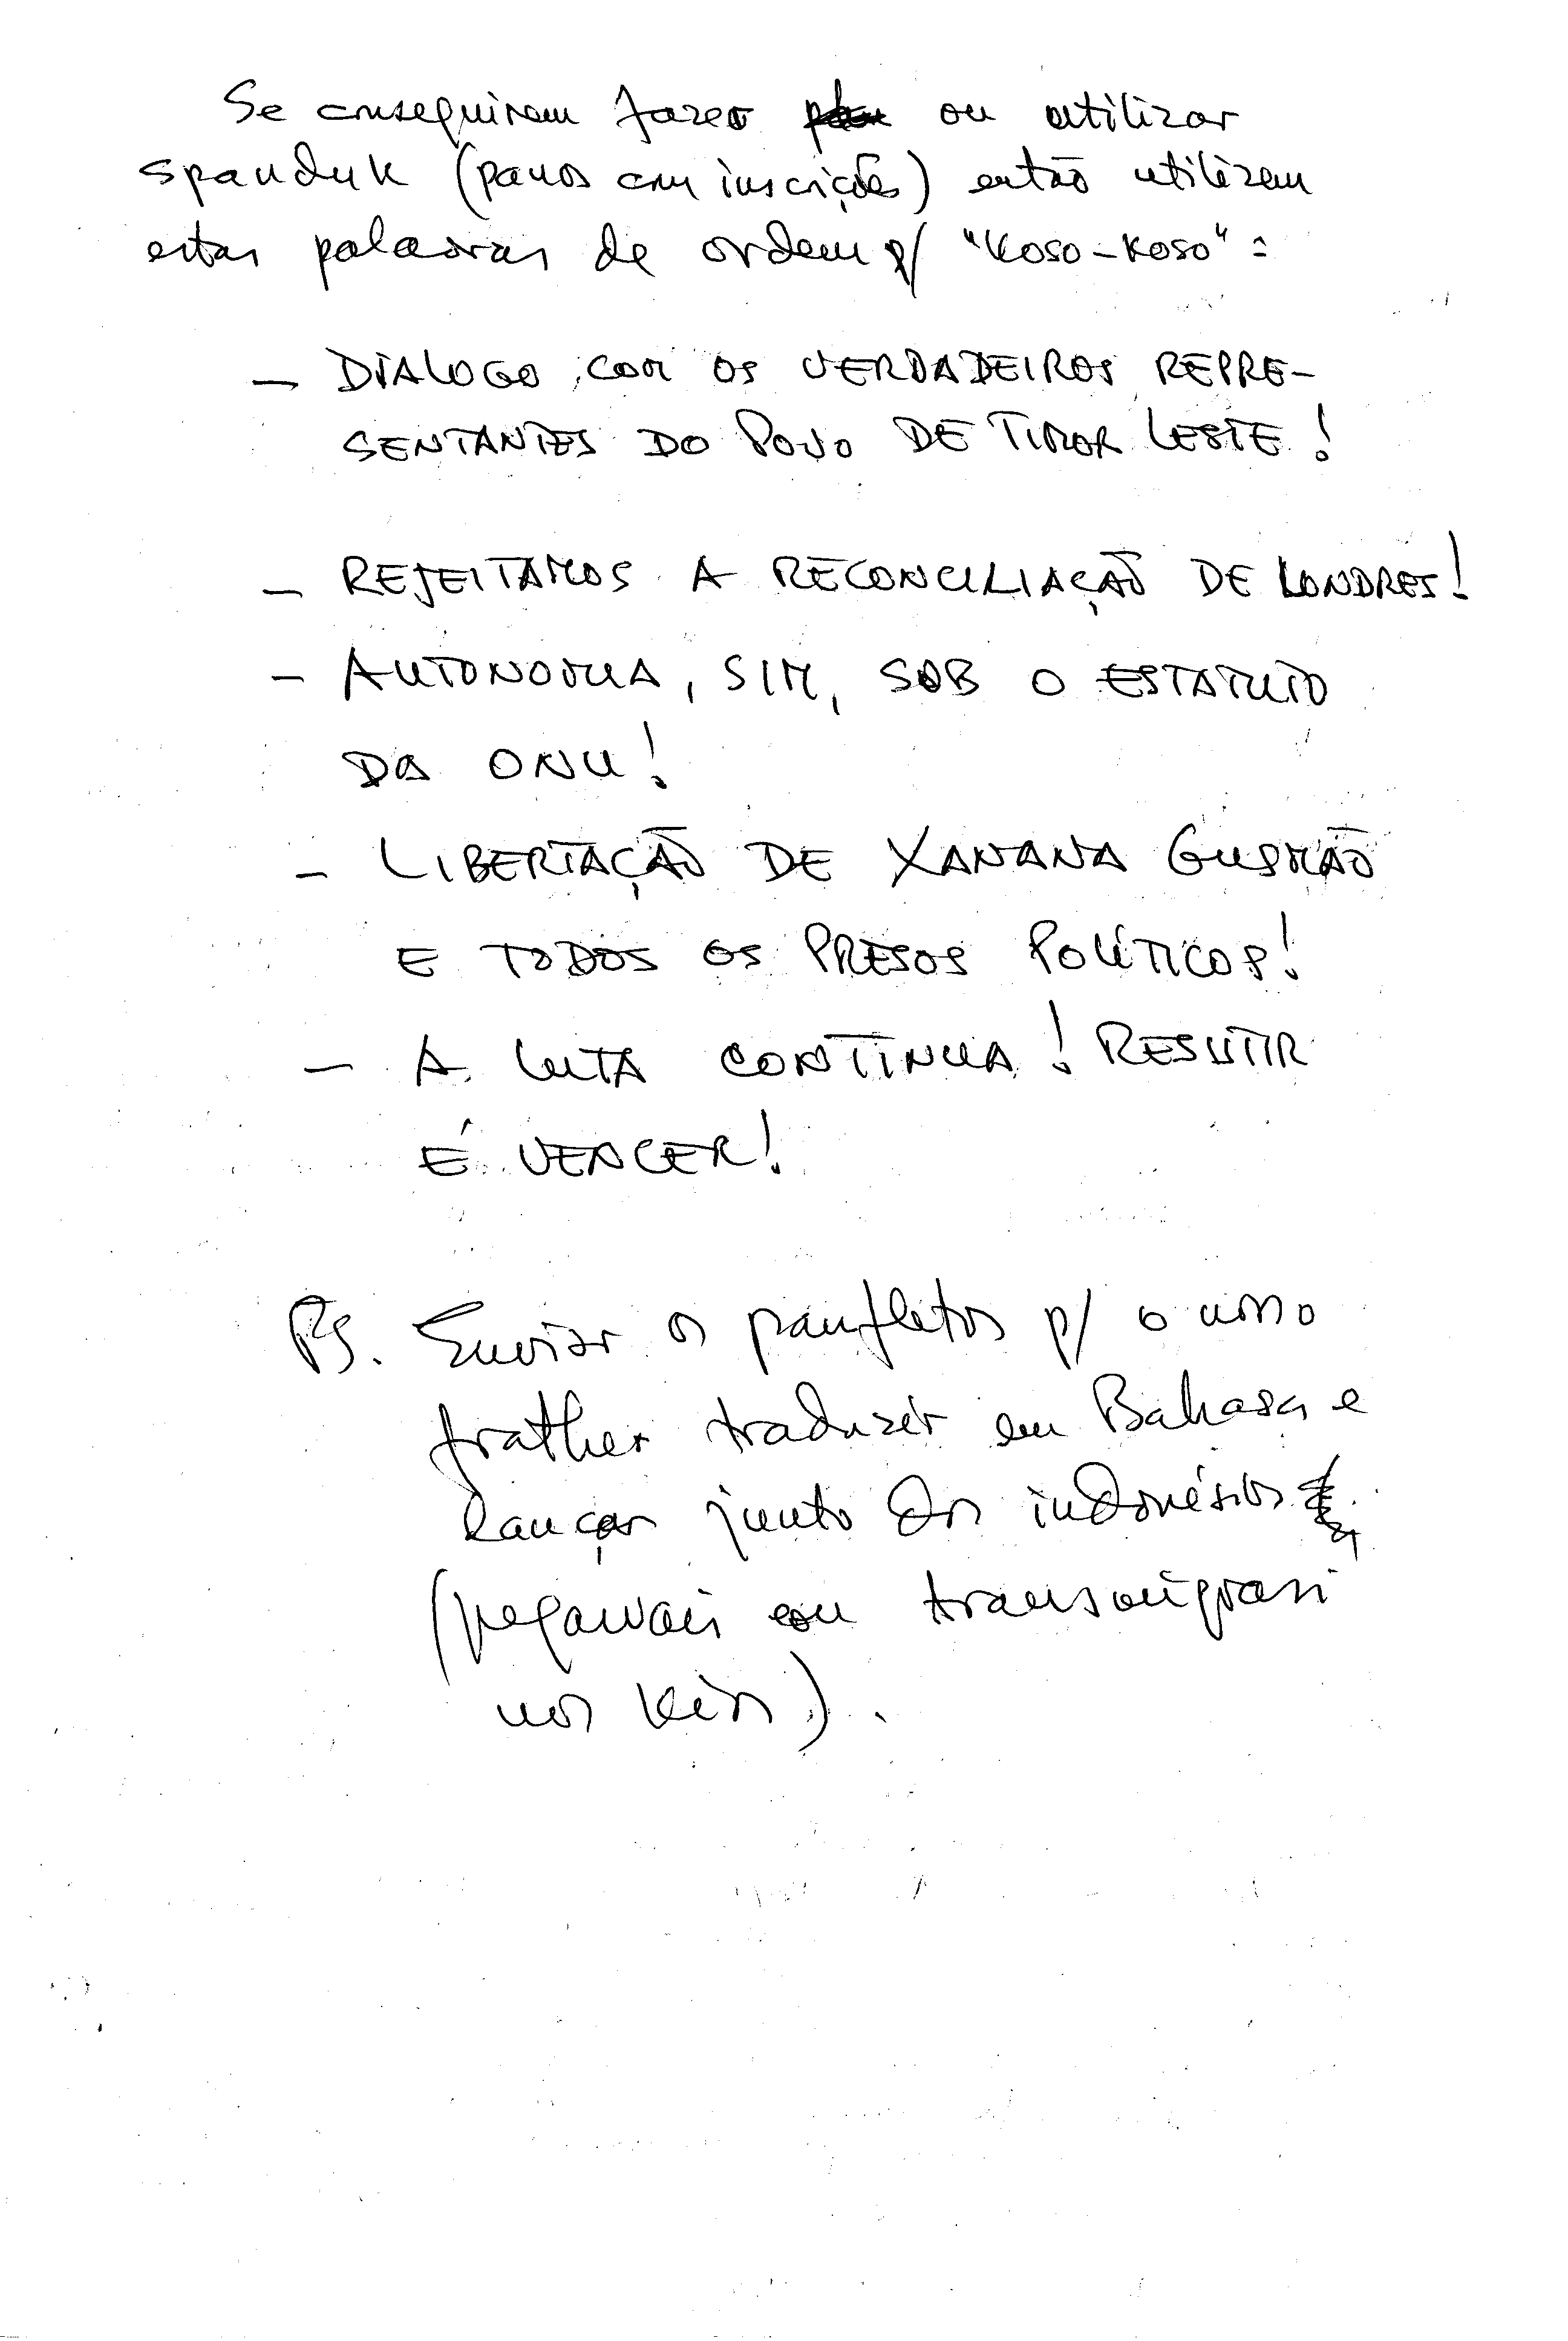 Se conseguirem fazer ou utilizar
spanduk (panos com inscições) então utilizem
estas palavras de ordem p/ "Koso-Koso" =
- DIALOGO COM OS VERDADEIROS REPRE-
SENTANTES DO POVO DE TIMOR LESTE!
- REJEITAMOS A RECONCILIAÇÃO DE LONDRES!
- AUTONOMIA, SIM, SOB O ESTATUTO
DA ONU!
- LIBERTAÇÃO DE XANANA GUSMÃO
E TODOS OS PRESOS POLÍTICOS!
- A LUTA CONTINUA! RESISTIR
É VENCER!
PS. Enviar os panfletos p/ o nosso
frather traduzir em Bahasa e
lançar junto dos indonésios
(pegawais ou transmigrasi
nos kèos).